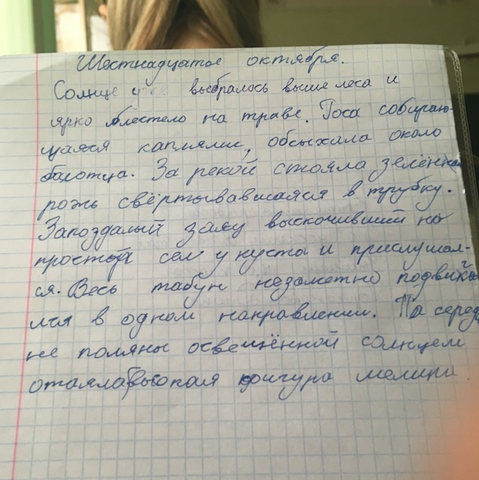 Шестнадцатое октября.
Солнце уже выбралось выше леса и
ярко блестело на траве. Роса собираю-
щаяся каплями, обсыхала около
болотца. За рекой стояла зелённая
рожь свёртывавшаяся в трубку.
Запоздалый заяц выскочивший на
простор сел у куста и прислушал-
ся. Весь табун незаметно подвига-
лся в одном направлении. На середи-
не поляны освещённой солнцем
стояла высокая фигура